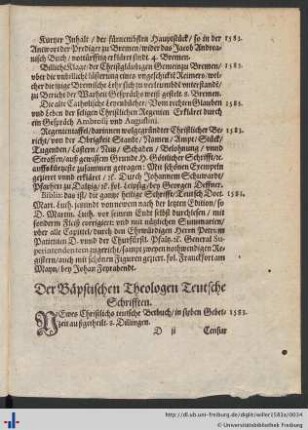 Kurtzer Inhalt / der fürnemsten Hauptstück / so in der 1583.
Antwort der Prediger zu Bremen / wider das Jacob Andreae-
nisch Buch / notturfftig erklärt sindt. 4. Bremen.
Billiche Klage / der Christglaubigen Gemeinge Bremen /
uber die unbilliche lästerung eines ungeschickte Reimers / wel-
cher die jtzige Bremische Lehr sich zu
zu Bericht der Warheit Gesprächs weiß gestelt. 8. Bremen.
Die alte Catholische Lehr deß Herr: Vom rechten Glauben 1583.
und Leben der seligen Christlichen Regenten. Erklärt durch
ein Gespräch Ambrosij und Augustini.
Regiententaffel / darinnen wolgegründter Christlicher Be- 1583.
richt / von der Obrigkeit Stande / Namen / Ampt / Stück /
Tugenden / Lastern / Nutz / Schaden / Belohnung / und
Straffen / auß gewissem Grunde H. Göttlicher Schrifft / ec.
auffs kürtzeste zusammen getragen: Mit schönen Exempeln
gezieret und erklärt / ec. Durch Johannem
Pfarherr zu Daltzig / ec. fol. Leiptzig bey Georgen Deffner.
Biblia / das ist / die gantze heilige Schrifft / Teutsch Doct. 1583.
Mart. Luth. jetzundt von newem nach der letzten Edition / so
D. Martin. Luth. vor seinem Endt selbst durchlesen / mit
sonderm fleiß corrigiert: und mit nützlichen Summarien /
uber alle Capitel / durch den Ehrwürdigen Herrn Petrum
Patienten D. und der Churfürstl. Pfaltz. ec. General Su-
perintendenten zugericht / sampt zweyen nothwendigen Re-
gistern / auch mit schönen Figuren geziert. fol. Franckfort am
Mayn / bey Johan Feyrabendt.
Der Bäpstischen Theologen Teutsche
Schrifften.
NEwes Christlichs teutsche Betbuch / in sieben Gebet- 1583.
zeit außgetheilt. 8. Dilingen.
D ij Censur
http://dl.ub.uni-freiburg.de/diglit/willer1583a/0034
© Universitätsbibliothek Freiburg